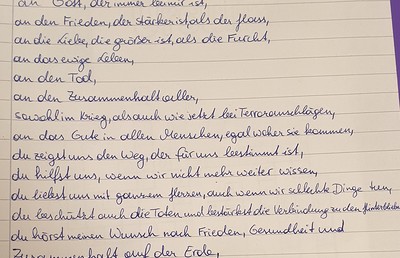 an Gott, der immer bei mir ist,
an den Frieden, der stärker ist, als der Hass,
an die Liebe, die größer ist, als die Furcht,
an das ewige Leben,
an den Tod,
an den Zusammenhalt aller,
sowohl im Krieg, als auch wie jetzt bei Terroranschlägen,
an das Gute in allen Menschen, egal woher sie kommen,
du zeigst uns den Weg, der für uns bestimmt ist,
du hilfst uns, wenn wir nicht mehr weiter wissen,
du liebst uns mit ganzem Herzen, auch wenn wir schlechte Dinge tun,
du beschützt auch die Toten und bestärkst die Verbindung zu den Hinterbliebenen
du hörst meinen Wunsch nach Frieden, Gesundheit und
Zusammenhalt auf der Erde,